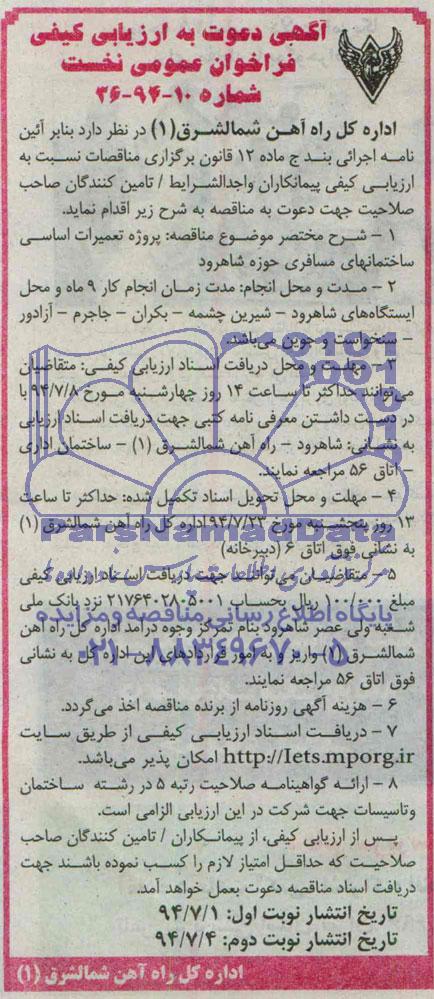 آگهی دعوت به ارزیابی کیفی
فراخوان عمومی نخست
شماره ۱۰-۹۴-۳۶
اداره کل راه آهن شمالشرق(۱) در نظر دارد بنابر آئین
نامه اجرائی بند ج ماده ۱۲ قانون برگزاری مناقصات نسبت به
ارزیابی کیفی پیمانکاران واجدالشرایط / تامین کنندگان صاحب
صلاحیت جهت دعوت به مناقصه به شرح زیر اقدام نماید.
۱ – شرح مختصر موضوع مناقصه: پروژه تعمیرات اساسی
ساختمانهای مسافری حوزه شاهرود
۲ – مدت و محل انجام: مدت زمان انجام کار ۹ ماه و محل
ایستگاه‌های شاهرود – شیرین چشمه – بکران – جاجرم – آزادور
– سنخواست و جوین می‌باشد.
۳ – مهلت و محل دریافت اسناد ارزیابی کیفی: متقاضیان
می‌توانند حداکثر تا ساعت ۱۴ روز چهارشنبه مورخ ۹۴/۷/۸ با
در دست داشتن معرفی نامه کتبی جهت دریافت اسناد ارزیابی
به نشانی: شاهرود – راه آهن شمالشرق (۱) – ساختمان اداری
– اتاق ۵۶ مراجعه نمایند.
۴ – مهلت و محل تحویل اسناد تکمیل شده: حداکثر تا ساعت
۱۳ روز پنجشنبه مورخ ۹۴/۷/۲۳ اداره کل راه آهن شمالشرق (۱)
به نشانی فوق اتاق ۶ (دبیرخانه)
۵ – متقاضیان می‌توانند جهت دریافت اسناد ارزیابی کیفی
مبلغ ۱۰۰/۰۰۰ ریال بحساب ۲۱۷۶۴۰۲۸۰۵۰۰۱ نزد بانک ملی
شعبه ولی عصر شاهرود بنام تمرکز وجوه درآمد اداره کل راه آهن
شمالشرق (۱) واریز و به امور قراردادهای این اداره کل به نشانی
فوق اتاق ۵۶ مراجعه نمایند.
۶ – هزینه آگهی روزنامه از برنده مناقصه اخذ می‌گردد.
۷ – دریافت اسناد ارزیابی کیفی از طریق سایت
http://Iets.mporg.ir امکان پذیر می‌باشد.
۸ – ارائه گواهینامه صلاحیت رتبه ۵ در رشته ساختمان
وتاسیسات جهت شرکت در این ارزیابی الزامی است.
پس از ارزیابی کیفی، از پیمانکاران / تامین کنندگان صاحب
صلاحیت که حداقل امتیاز لازم را کسب نموده باشند جهت
دریافت اسناد مناقصه دعوت بعمل خواهد آمد.
تاریخ انتشار نوبت اول: ۹۴/۷/۱
تاریخ انتشار نوبت دوم: ۹۴/۷/۴
اداره کل راه آهن شمالشرق (۱)
ParsNamadData
پایگاه اطلاع رسانی مناقصه و مزایده
۰۲۱-۸۸۳۴۹۶۷۰-۵